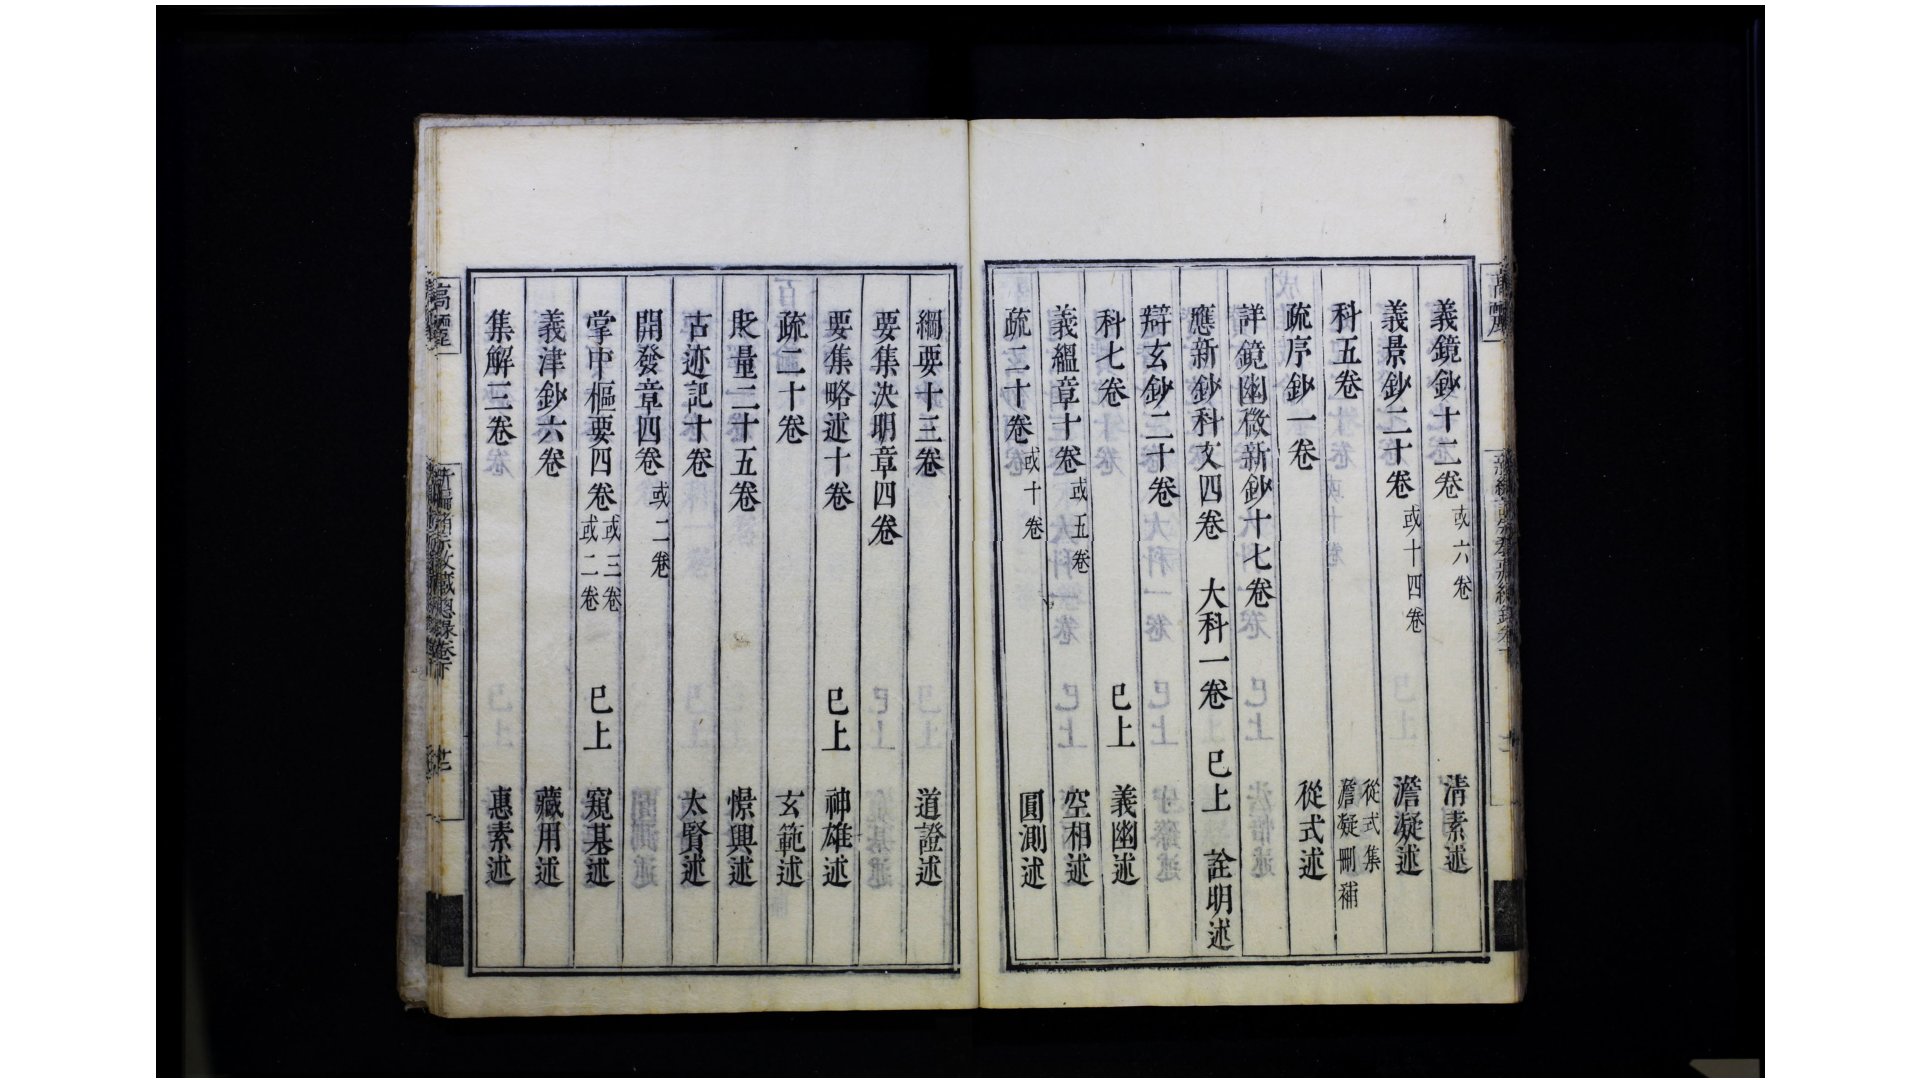 義鏡鈔十二卷 或六卷 清素述
義景鈔二十卷 或十四卷 澹凝述
科五卷 從式集 澹凝刪補
疏序鈔一卷 從式述
詳鏡幽微新鈔十七卷
應新鈔科文四卷 大科一卷 已上 詮明述
辯玄鈔二十卷
科七卷 已上 義幽述
義縕章十卷 或五卷 空相述
疏二十卷 或十卷 圓測述
綱要十三卷 道證述
要集決明章四卷
要集略述十卷 已上 神雄述
疏二十卷 玄範述
貶量二十五卷 憬興述
古迹記十卷 太賢述
開發章四卷 或二卷
掌中樞要四卷 或三卷 或二卷 已上 窺基述
義津鈔六卷 藏用述
集解三卷 惠素述
高麗
新編諸宗敎藏總錄卷下